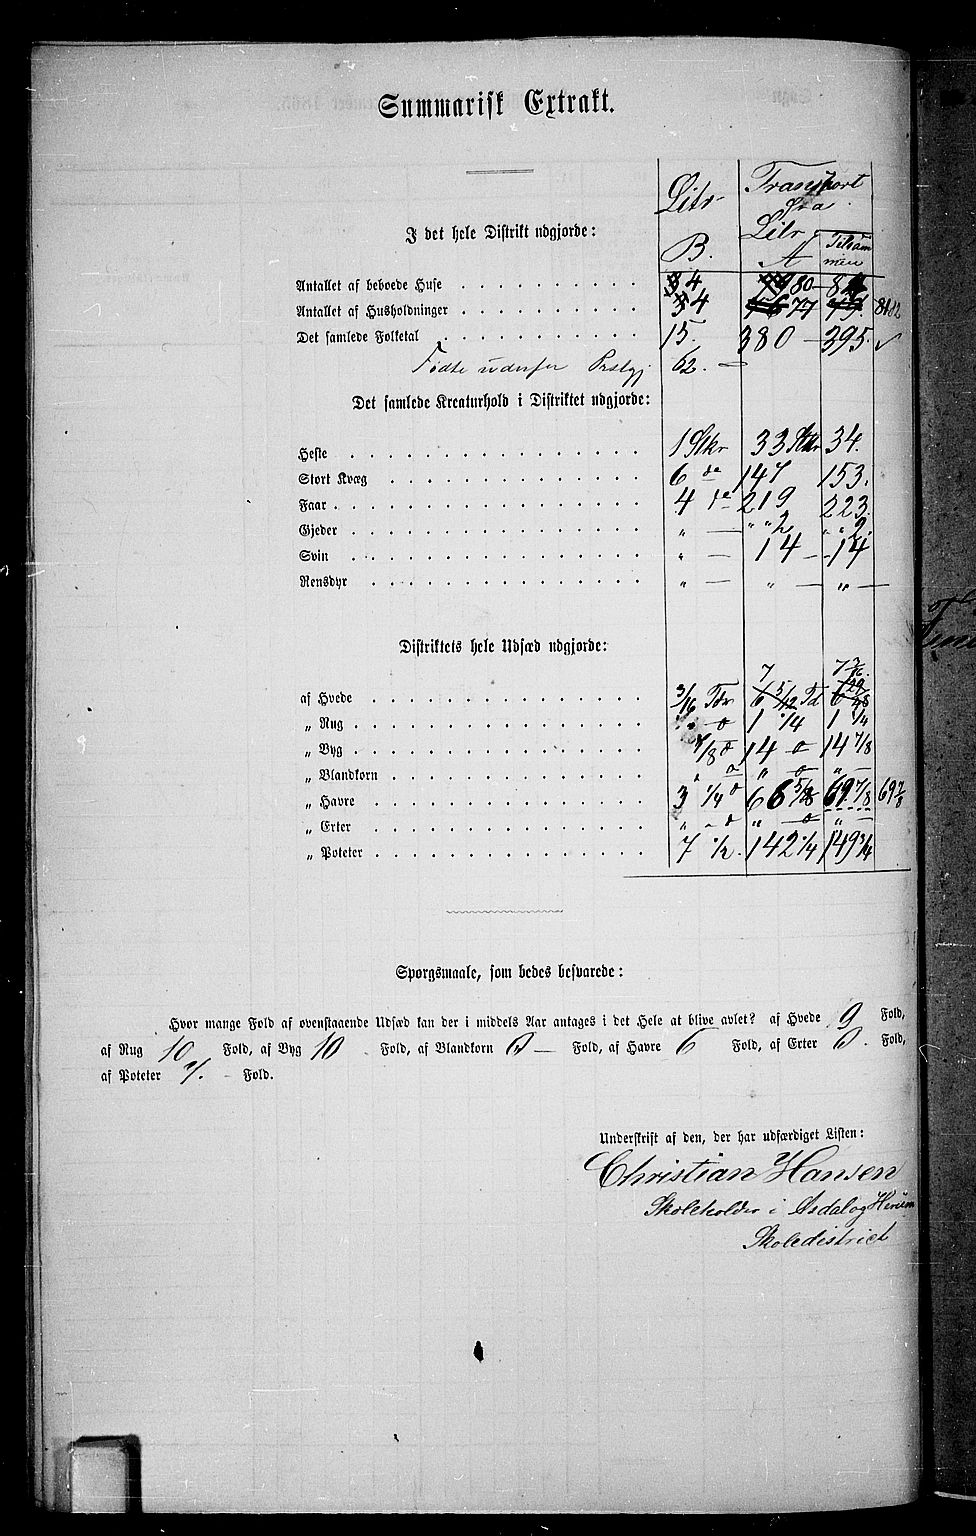 Summarisk Extrakt.
Litr B. Transport fra Litr A Tilsammen
I det hele Distrikt udgjorde:
Antallet af beboede Huse 4 80
Antallet af Husholdninger 4 77
Det samlede Folketal 15. 380 – 395.
Fødte udenfor 62. –
Det samlede Kreaturhold i Distriktet udgjorde:
Heste 1 Stkr 33 Stkr 34.
Stort Kvæg 6 do 147 153.
Faar 4 do 219 223.
Gjeder „ — „ „ 2 „ „ 2.
Svin „ — 14 – 14
Rensdyr „ — „ — „ —
Distriktets hele Udsæd udgjorde:
7 7 3/16.
af Hvede 3/16 Tdr 6 5/12 Td
„ Rug „ o 1 1/4 1 1/4
„ Byg 7/8 o 14 o 14 7/8
„ Blandkorn „ o „ o „ —
„ Havre 3 1/4 o 66 5/8 69 7/8 69 7/8
„ Erter „ - o „ — o „ —
„ Poteter 7 1/2. 142 1/4 149 3/4
Sporgsmaale, som bedes besvarede:
Hvor mange Fold af ovenstaaende Udsæd kan der i middels Aar antages i det Hele at blive avlet? af Hvede 9 Fold,
af Rug 10 Fold, af Byg 10 Fold, af Blandkorn 0 — Fold, af Havre 6 Fold, af Erter 0. Fold,
af Poteter Fold.
Underskrift af den, der har udfærdiget Listen:
Christian Hansen
Skoleholder i Asdal og
Skoledistrict